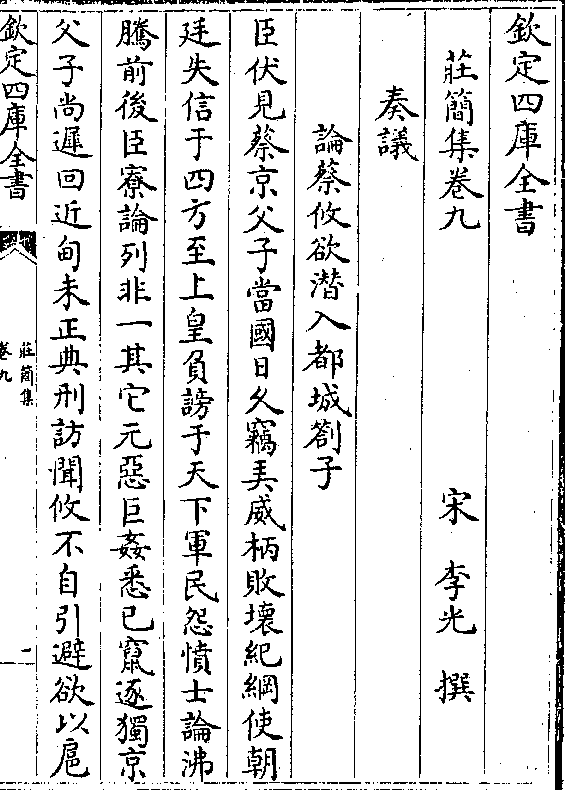 欽定四庫全書
莊簡集卷九
宋 李光 撰
奏議
論蔡攸欲潛入都城劄子
臣伏見蔡京父子當國日久竊弄威柄敗壞紀綱使朝
廷失信于四方至上皇負謗于天下軍民怨憤士論沸
騰前後臣寮論列非一其它元惡巨姦悉已竄逐獨京
父子尚遲回近甸未正典刑訪聞攸不自引避欲以扈
欽定四庫全書
莊簡集
卷九
一